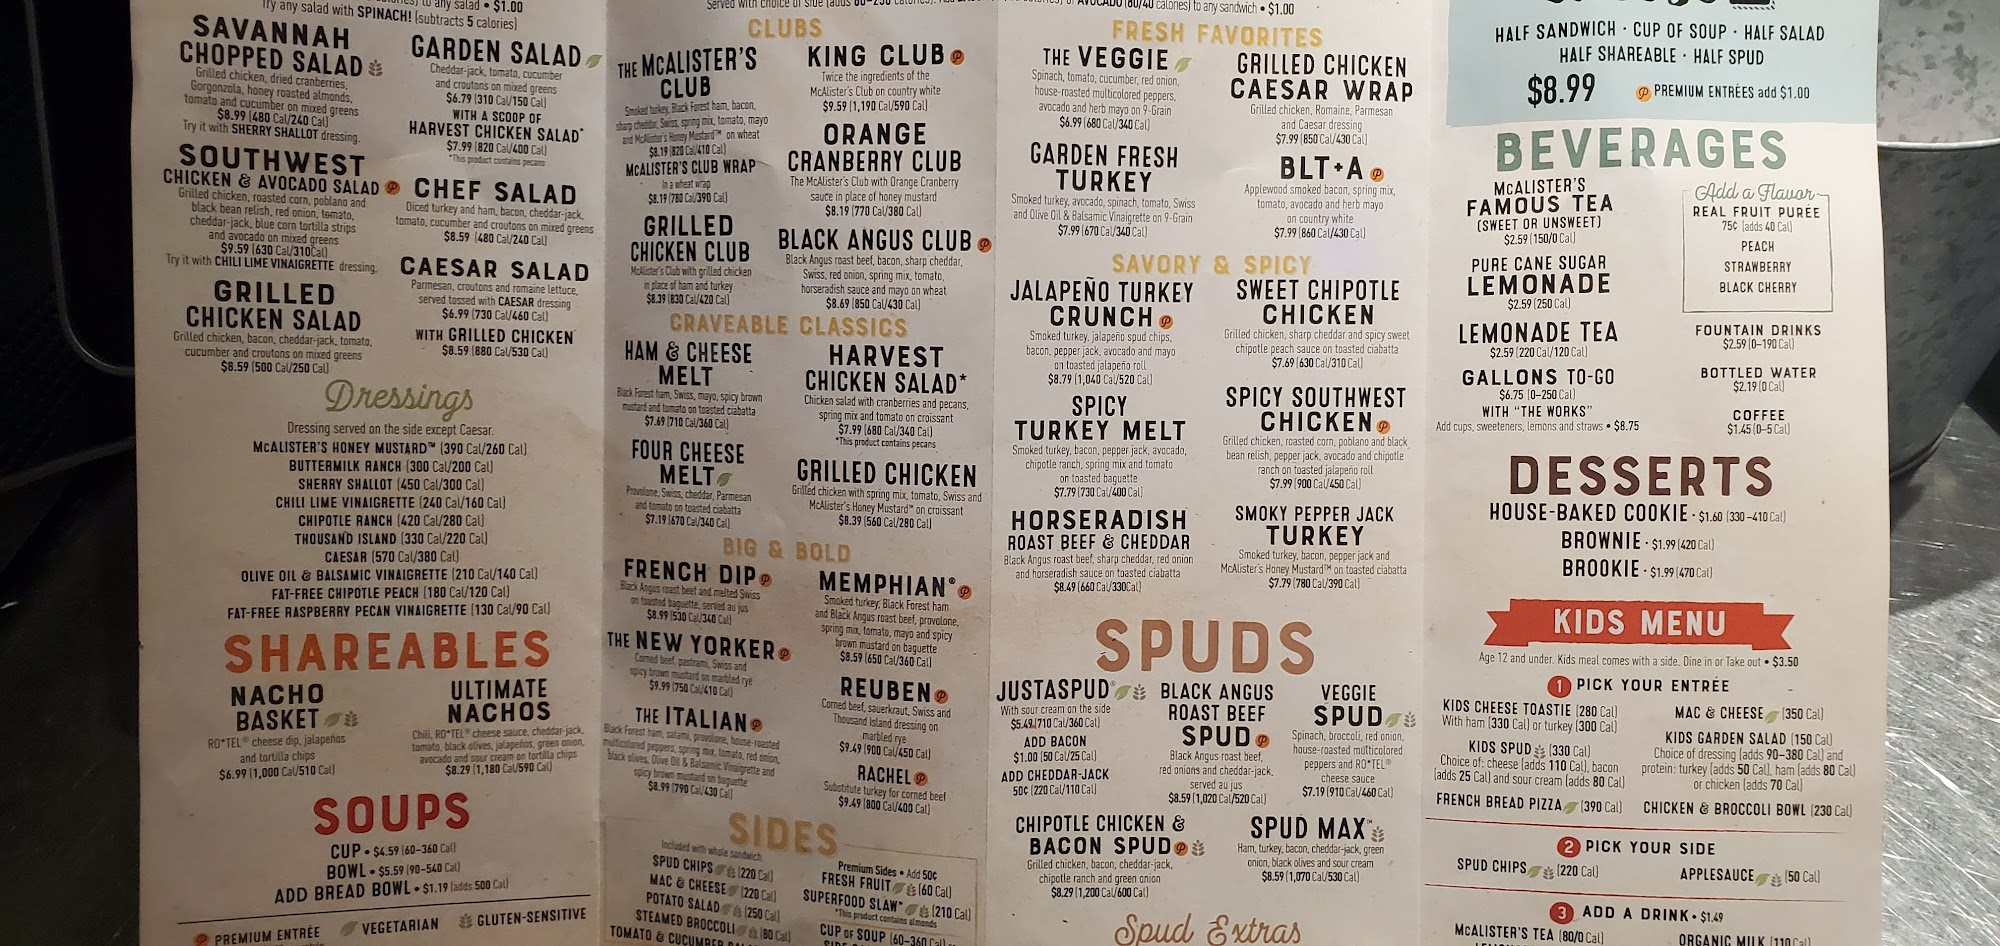 to any salad • $1.00
Try any salad with SPINACH! (subtracts 5 calories)
SAVANNAH
CHOPPED SALAD
Grilled chicken, dried cranberries,
Gorgonzola, honey roasted almonds,
tomato and cucumber on mixed greens
$8.99 (480 Cal/240 Cal)
Try it with SHERRY SHALLOT dressing.
SOUTHWEST
CHICKEN & AVOCADO SALAD
Grilled chicken, roasted corn, poblano and
black bean relish, red onion, tomato,
cheddar-jack, blue corn tortilla strips
and avocado on mixed greens
$9.59 (630 Cal/310Cal)
Try it with CHILI LIME VINAIGRETTE dressing.
GRILLED
CHICKEN SALAD
Grilled chicken, bacon, cheddar-jack, tomato,
cucumber and croutons on mixed greens
$8.59 (500 Cal/250 Cal)
GARDEN SALAD
Cheddar-jack, tomato, cucumber
and croutons on mixed greens
$6.79 (310 Cal/150 Cal)
WITH A SCOOP OF
HARVEST CHICKEN SALAD*
$7.99 (820 Cal/400 Cal)
*This product contains pecans
CHEF SALAD
Diced turkey and ham, bacon, cheddar-jack,
tomato, cucumber and croutons on mixed greens
$8.59 (480 Cal/240 Cal)
CAESAR SALAD
Parmesan, croutons and romaine lettuce,
served tossed with CAESAR dressing
$6.99 (730 Cal/460 Cal)
WITH GRILLED CHICKEN
$8.59 (880 Cal/530 Cal)
Dressings
Dressing served on the side except Caesar.
McALISTER'S HONEY MUSTARD™ (390 Cal/260 Cal)
BUTTERMILK RANCH (300 Cal/200 Cal)
SHERRY SHALLOT (450 Cal/300 Cal)
CHILI LIME VINAIGRETTE (240 Cal/160 Cal)
CHIPOTLE RANCH (420 Cal/280 Cal)
THOUSAND ISLAND (330 Cal/220 Cal)
CAESAR (570 Cal/380 Cal)
OLIVE OIL & BALSAMIC VINAIGRETTE (210 Cal/140 Cal)
FAT-FREE CHIPOTLE PEACH (180 Cal/120 Cal)
FAT-FREE RASPBERRY PECAN VINAIGRETTE (130 Cal/90 Cal)
SHAREABLES
NACHO
BASKET
RO*TEL® cheese dip, jalapeños
and tortilla chips
$6.99 (1,000 Cal/510 Cal)
ULTIMATE
NACHOS
Chili, RO*TEL® cheese sauce, cheddar-jack,
tomato, black olives, jalapeños, green onion,
avocado and sour cream on tortilla chips
$8.29 (1,180 Cal/590 Cal)
SOUPS
CUP • $4.59 (60-360 Cal)
BOWL • $5.59 (90-540 Cal)
ADD BREAD BOWL • $1.19 (adds 500 Cal)
PREMIUM ENTRÉE VEGETARIAN GLUTEN-SENSITIVE
Served with choice of side
AVOCADO (80/40 calories) to any sandwich • $1.00
CLUBS
THE McALISTER'S
CLUB
Smoked turkey, Black Forest ham, bacon,
sharp cheddar, Swiss, spring mix, tomato, mayo
and McAlister's Honey Mustard™ on wheat
$8.19 (820 Cal/410 Cal)
McALISTER'S CLUB WRAP
In a wheat wrap
$8.19 (780 Cal/390 Cal)
GRILLED
CHICKEN CLUB
McAlister's Club with grilled chicken
in place of ham and turkey
$8.39 (830 Cal/420 Cal)
KING CLUB
Twice the ingredients of the
McAlister's Club on country white
$9.59 (1,190 Cal/590 Cal)
ORANGE
CRANBERRY CLUB
The McAlister's Club with Orange Cranberry
sauce in place of honey mustard
$8.19 (770 Cal/380 Cal)
BLACK ANGUS CLUB
Black Angus roast beef, bacon, sharp cheddar,
Swiss, red onion, spring mix, tomato,
horseradish sauce and mayo on wheat
$8.69 (850 Cal/430 Cal)
CRAVEABLE CLASSICS
HAM & CHEESE
MELT
Black Forest ham, Swiss, mayo, spicy brown
mustard and tomato on toasted ciabatta
$7.69 (710 Cal/360 Cal)
FOUR CHEESE
MELT
Provolone, Swiss, cheddar, Parmesan
and tomato on toasted ciabatta
$7.19 (670 Cal/340 Cal)
HARVEST
CHICKEN SALAD*
Chicken salad with cranberries and pecans,
spring mix and tomato on croissant
$7.99 (680 Cal/340 Cal)
*This product contains pecans
GRILLED CHICKEN
Grilled chicken with spring mix, tomato, Swiss and
McAlister's Honey Mustard™ on croissant
$8.39 (560 Cal/280 Cal)
BIG & BOLD
FRENCH DIP
Black Angus roast beef and melted Swiss
on toasted baguette, served au jus
$8.99 (530 Cal/340 Cal)
THE NEW YORKER
Corned beef, pastrami, Swiss and
spicy brown mustard on marbled rye
$9.99 (750 Cal/410 Cal)
THE ITALIAN
Black Forest ham, salami, provolone, house-roasted
multicolored peppers, spring mix, tomato, red onion,
black olives, Olive Oil & Balsamic Vinaigrette and
spicy brown mustard on baguette
$8.99 (790 Cal/430 Cal)
MEMPHIAN®
Smoked turkey, Black Forest ham
and Black Angus roast beef, provolone,
spring mix, tomato, mayo and spicy
brown mustard on baguette
$8.59 (650 Cal/360 Cal)
REUBEN
Corned beef, sauerkraut, Swiss and
Thousand Island dressing on
marbled rye
$9.49 (900 Cal/450 Cal)
RACHEL
Substitute turkey for corned beef
$9.49 (800 Cal/400 Cal)
SIDES
Included with whole sandwich.
SPUD CHIPS (220 Cal)
MAC & CHEESE (220 Cal)
POTATO SALAD (250 Cal)
STEAMED BROCCOLI (80 Cal)
TOMATO & CUCUMBER
Premium Sides • Add 50¢
FRESH FRUIT (60 Cal)
SUPERFOOD SLAW* (210 Cal)
*This product contains almonds
CUP OF SOUP (60-360 Cal)
FRESH FAVORITES
THE VEGGIE
Spinach, tomato, cucumber, red onion,
house-roasted multicolored peppers,
avocado and herb mayo on 9-Grain
$6.99 (680 Cal/340 Cal)
GARDEN FRESH
TURKEY
Smoked turkey, avocado, spinach, tomato, Swiss
and Olive Oil & Balsamic Vinaigrette on 9-Grain
$7.99 (670 Cal/340 Cal)
GRILLED CHICKEN
CAESAR WRAP
Grilled chicken, Romaine, Parmesan
and Caesar dressing
$7.99 (850 Cal/430 Cal)
BLT+A
Applewood smoked bacon, spring mix,
tomato, avocado and herb mayo
on country white
$7.99 (860 Cal/430 Cal)
SAVORY & SPICY
JALAPEÑO TURKEY
CRUNCH
Smoked turkey, jalapeño spud chips,
bacon, pepper jack, avocado and mayo
on toasted jalapeño roll
$8.79 (1,040 Cal/520 Cal)
SPICY
TURKEY MELT
Smoked turkey, bacon, pepper jack, avocado,
chipotle ranch, spring mix and tomato
on toasted baguette
$7.79 (730 Cal/400 Cal)
HORSERADISH
ROAST BEEF & CHEDDAR
Black Angus roast beef, sharp cheddar, red onion
and horseradish sauce on toasted ciabatta
$8.49 (660 Cal/330Cal)
SWEET CHIPOTLE
CHICKEN
Grilled chicken, sharp cheddar and spicy sweet
chipotle peach sauce on toasted ciabatta
$7.69 (630 Cal/310 Cal)
SPICY SOUTHWEST
CHICKEN
Grilled chicken, roasted corn, poblano and black
bean relish, pepper jack, avocado and chipotle
ranch on toasted jalapeño roll
$7.99 (900 Cal/450 Cal)
SMOKY PEPPER JACK
TURKEY
Smoked turkey, bacon, pepper jack and
McAlister's Honey Mustard™ on toasted ciabatta
$7.79 (780 Cal/390 Cal)
SPUDS
JUSTASPUD®
With sour cream on the side
$5.49 (710 Cal/360 Cal)
ADD BACON
$1.00 (50 Cal/25 Cal)
ADD CHEDDAR-JACK
50¢ (220 Cal/110 Cal)
BLACK ANGUS
ROAST BEEF
SPUD
Black Angus roast beef,
red onions and cheddar-jack,
served au jus
$8.59 (1,020 Cal/520 Cal)
VEGGIE
SPUD
Spinach, broccoli, red onion,
house-roasted multicolored
peppers and RO*TEL®
cheese sauce
$7.19 (910 Cal/460 Cal)
CHIPOTLE CHICKEN &
BACON SPUD
Grilled chicken, bacon, cheddar-jack,
chipotle ranch and green onion
$8.29 (1,200 Cal/600 Cal)
SPUD MAX™
Ham, turkey, bacon, cheddar-jack, green
onion, black olives and sour cream
$8.59 (1,070 Cal/530 Cal)
Spud Extras
HALF SANDWICH · CUP OF SOUP · HALF SALAD
HALF SHAREABLE · HALF SPUD
$8.99 PREMIUM ENTRÉES add $1.00
BEVERAGES
McALISTER'S
FAMOUS TEA
(SWEET OR UNSWEET)
$2.59 (150/0 Cal)
PURE CANE SUGAR
LEMONADE
$2.59 (250 Cal)
LEMONADE TEA
$2.59 (220 Cal/120 Cal)
GALLONS TO-GO
$6.75 (0-250 Cal)
WITH "THE WORKS"
Add cups, sweeteners, lemons and straws • $8.75
Add a Flavor
REAL FRUIT PURÉE
75¢ (adds 40 Cal)
PEACH
STRAWBERRY
BLACK CHERRY
FOUNTAIN DRINKS
$2.59 (0-190 Cal)
BOTTLED WATER
$2.19 (0 Cal)
COFFEE
$1.45 (0-5 Cal)
DESSERTS
HOUSE-BAKED COOKIE · $1.60 (330-410 Cal)
BROWNIE · $1.99 (420 Cal)
BROOKIE · $1.99 (470 Cal)
KIDS MENU
Age 12 and under. Kids meal comes with a side. Dine in or Take out • $3.50
1 PICK YOUR ENTRÉE
KIDS CHEESE TOASTIE (280 Cal)
With ham (330 Cal) or turkey (300 Cal)
KIDS SPUD (330 Cal)
Choice of: cheese (adds 110 Cal), bacon
(adds 25 Cal) and sour cream (adds 80 Cal)
FRENCH BREAD PIZZA (390 Cal)
MAC & CHEESE (350 Cal)
KIDS GARDEN SALAD (150 Cal)
Choice of dressing (adds 90-380 Cal) and
protein: turkey (adds 50 Cal), ham (adds 80 Cal)
or chicken (adds 70 Cal)
CHICKEN & BROCCOLI BOWL (230 Cal)
2 PICK YOUR SIDE
SPUD CHIPS (220 Cal)
APPLESAUCE (50 Cal)
3 ADD A DRINK • $1.49
McALISTER'S TEA (80/0 Cal)
ORGANIC MILK (110 Cal)